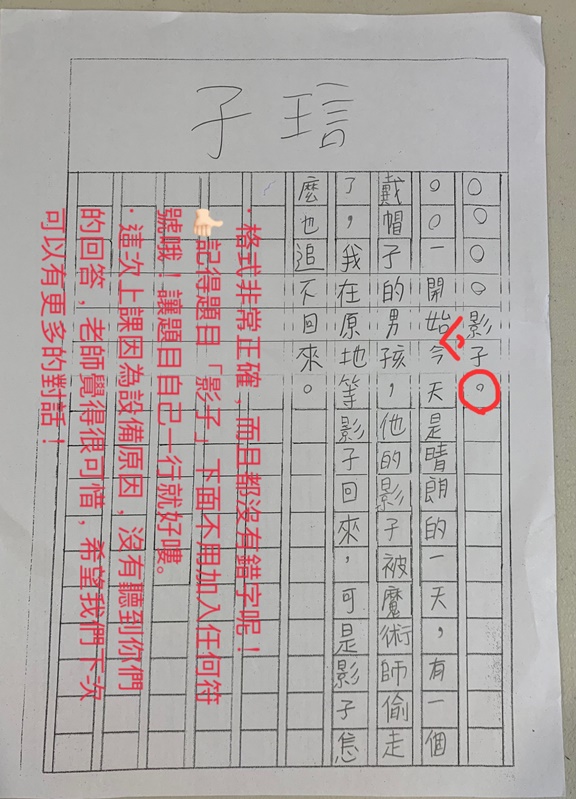 子琂
○○○○影子。
○○一開始，今天是晴朗的一天，有一個
戴帽子的男孩，他的影子被魔術師偷走
了，我在原地等影子回來，可是影子怎
麼也追不回來。
·格式非常正確，而且都沒有錯字呢！
👍🏻記得題目「影子」下面不用加入任何符
號哦！讓題目自己一行就好嘍。
·這次上課因為設備原因，沒有聽到你們
的回答，老師覺得很可惜，希望我們下次
可以有更多的對話！